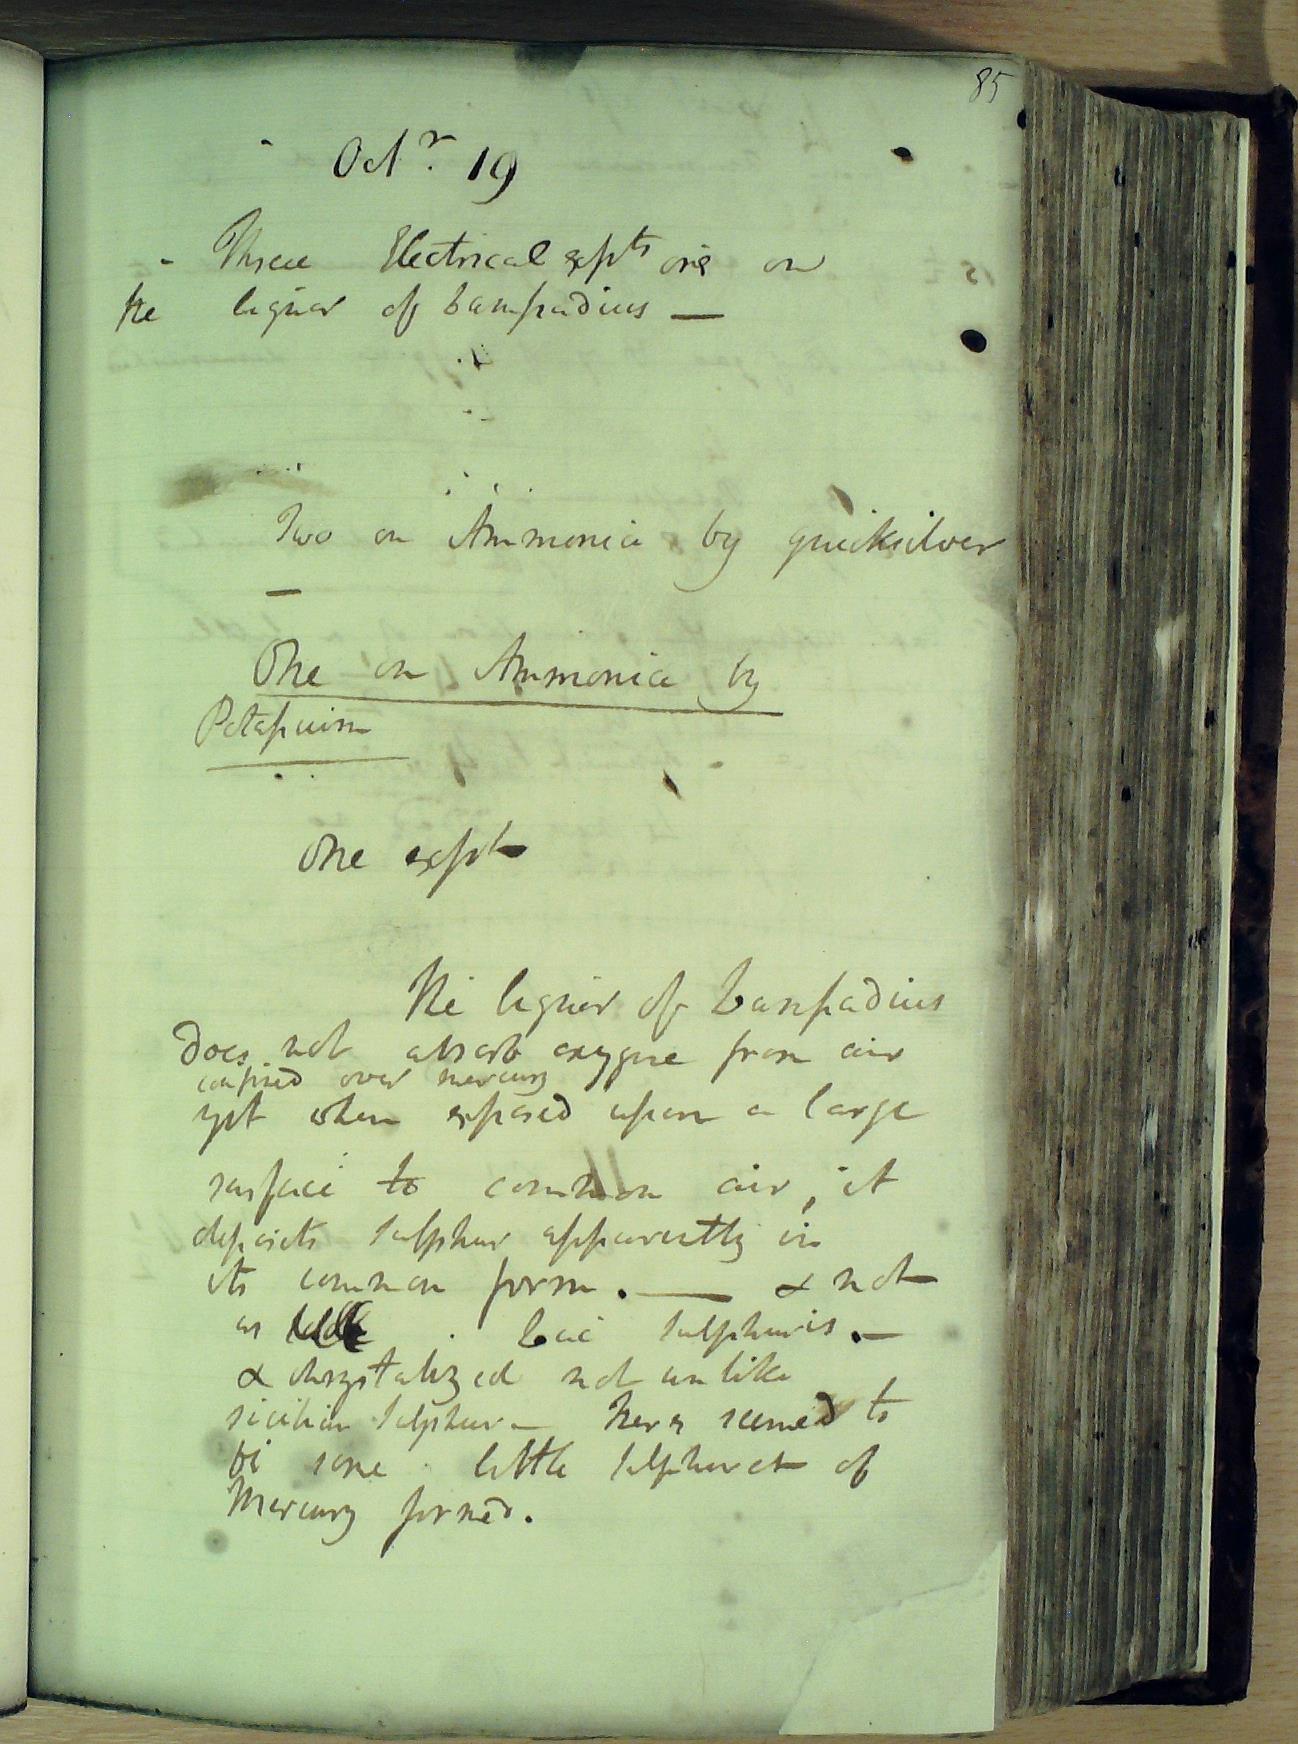 85
Octr. 19
- Three Electrical expts one on
the liquor of Lampadius —
Two on Ammonia by quicksilver
—
One on Ammonia by
Potassium
One expt
The liquor of Lampadius
does not absorb oxygene from air
confined over mercury
yet when exposed upon a large
surface to common air, it
deposits sulphur apparently in
its common form. — & not
as Lac sulphuris. —
& chrystalized not unlike
sicilian sulphur — there seemed to
be some little sulphuret of
Mercury formed.